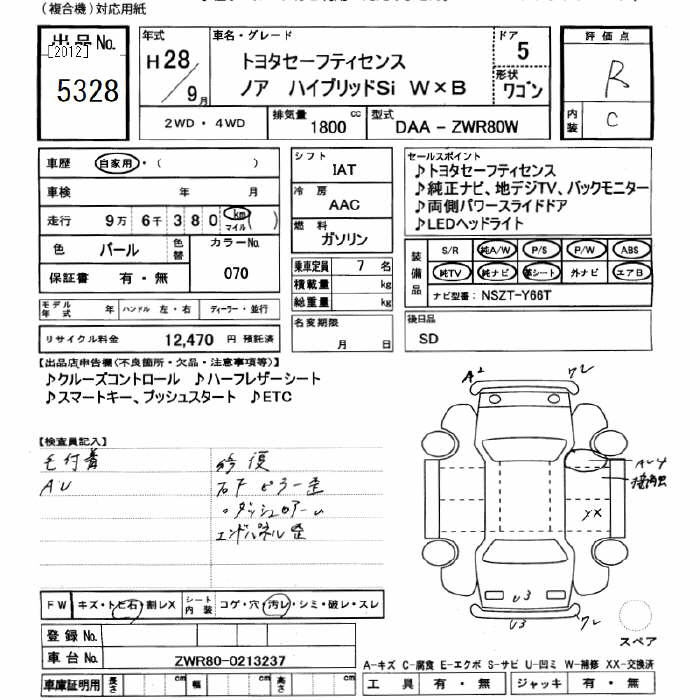 (複合機)対応用紙
出品No.
[2012]
5328
年式
H28/9月
車名・グレード
トヨタセーフティセンス
ノア ハイブリッドSi W×B
ドア
5
形状
ワゴン
評価点
R
内装
C
2WD・4WD
排気量
1800 cc
型式
DAA - ZWR80W
車歴 自家用・( )
車検 年 月
走行 9万 6千 380 km マイル ( )
色 パール
色替
カラーNo.
070
保証書 有・無
モデル年式 年 ハンドル 左・右 ディーラー・並行
リサイクル料金 12,470 円 預託済
シフト
IAT
冷房
AAC
燃料
ガソリン
乗車定員 7 名
積載量 kg
総重量 kg
名変期限
月 日
セールスポイント
♪トヨタセーフティセンス
♪純正ナビ、地デジTV、バックモニター
♪両側パワースライドドア
♪LEDヘッドライト
装備品
S/R 純A/W P/S P/W ABS
純TV 純ナビ 革シート 外ナビ エアB
ナビ型番: NSZT-Y66T
後日品
SD
【出品店申告欄(不良箇所・欠品・注意事項等)】
♪クルーズコントロール ♪ハーフレザーシート
♪スマートキー、プッシュスタート ♪ETC
【検査員記入】
AU
修復
右下ピラー歪
エンドパネル歪
A2
ワレ
XX
U3
U3
ワレ
スペア
FW キズ・トビ石・割レX
シート内装 コゲ・穴・汚レ・シミ・破レ・スレ
登録No.
車台No. ZWR80-0213237
車庫証明用 長さ cm 幅 cm 高さ cm
A-キズ C-腐食 E-エクボ S-サビ U-凹ミ W-補修 XX-交換済
工具 有・無 ジャッキ 有・無